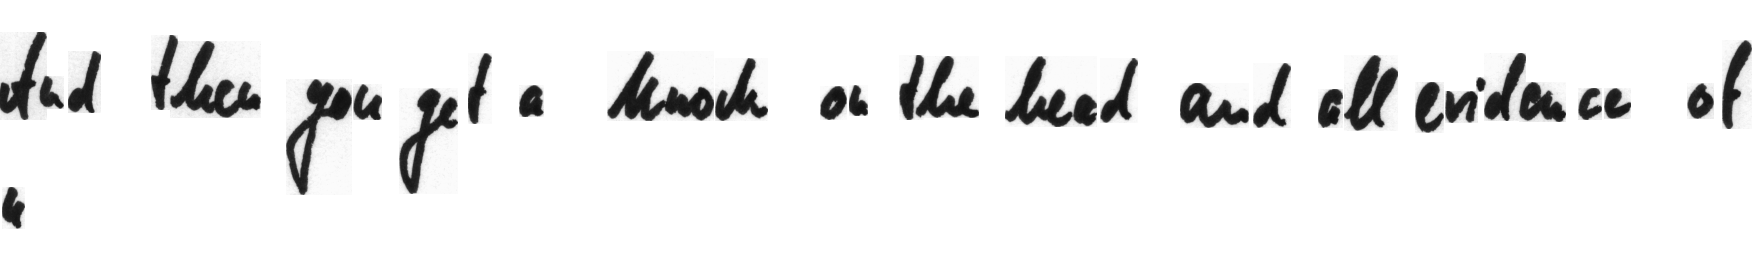 And then you get a knock on the head and all evidence of
a